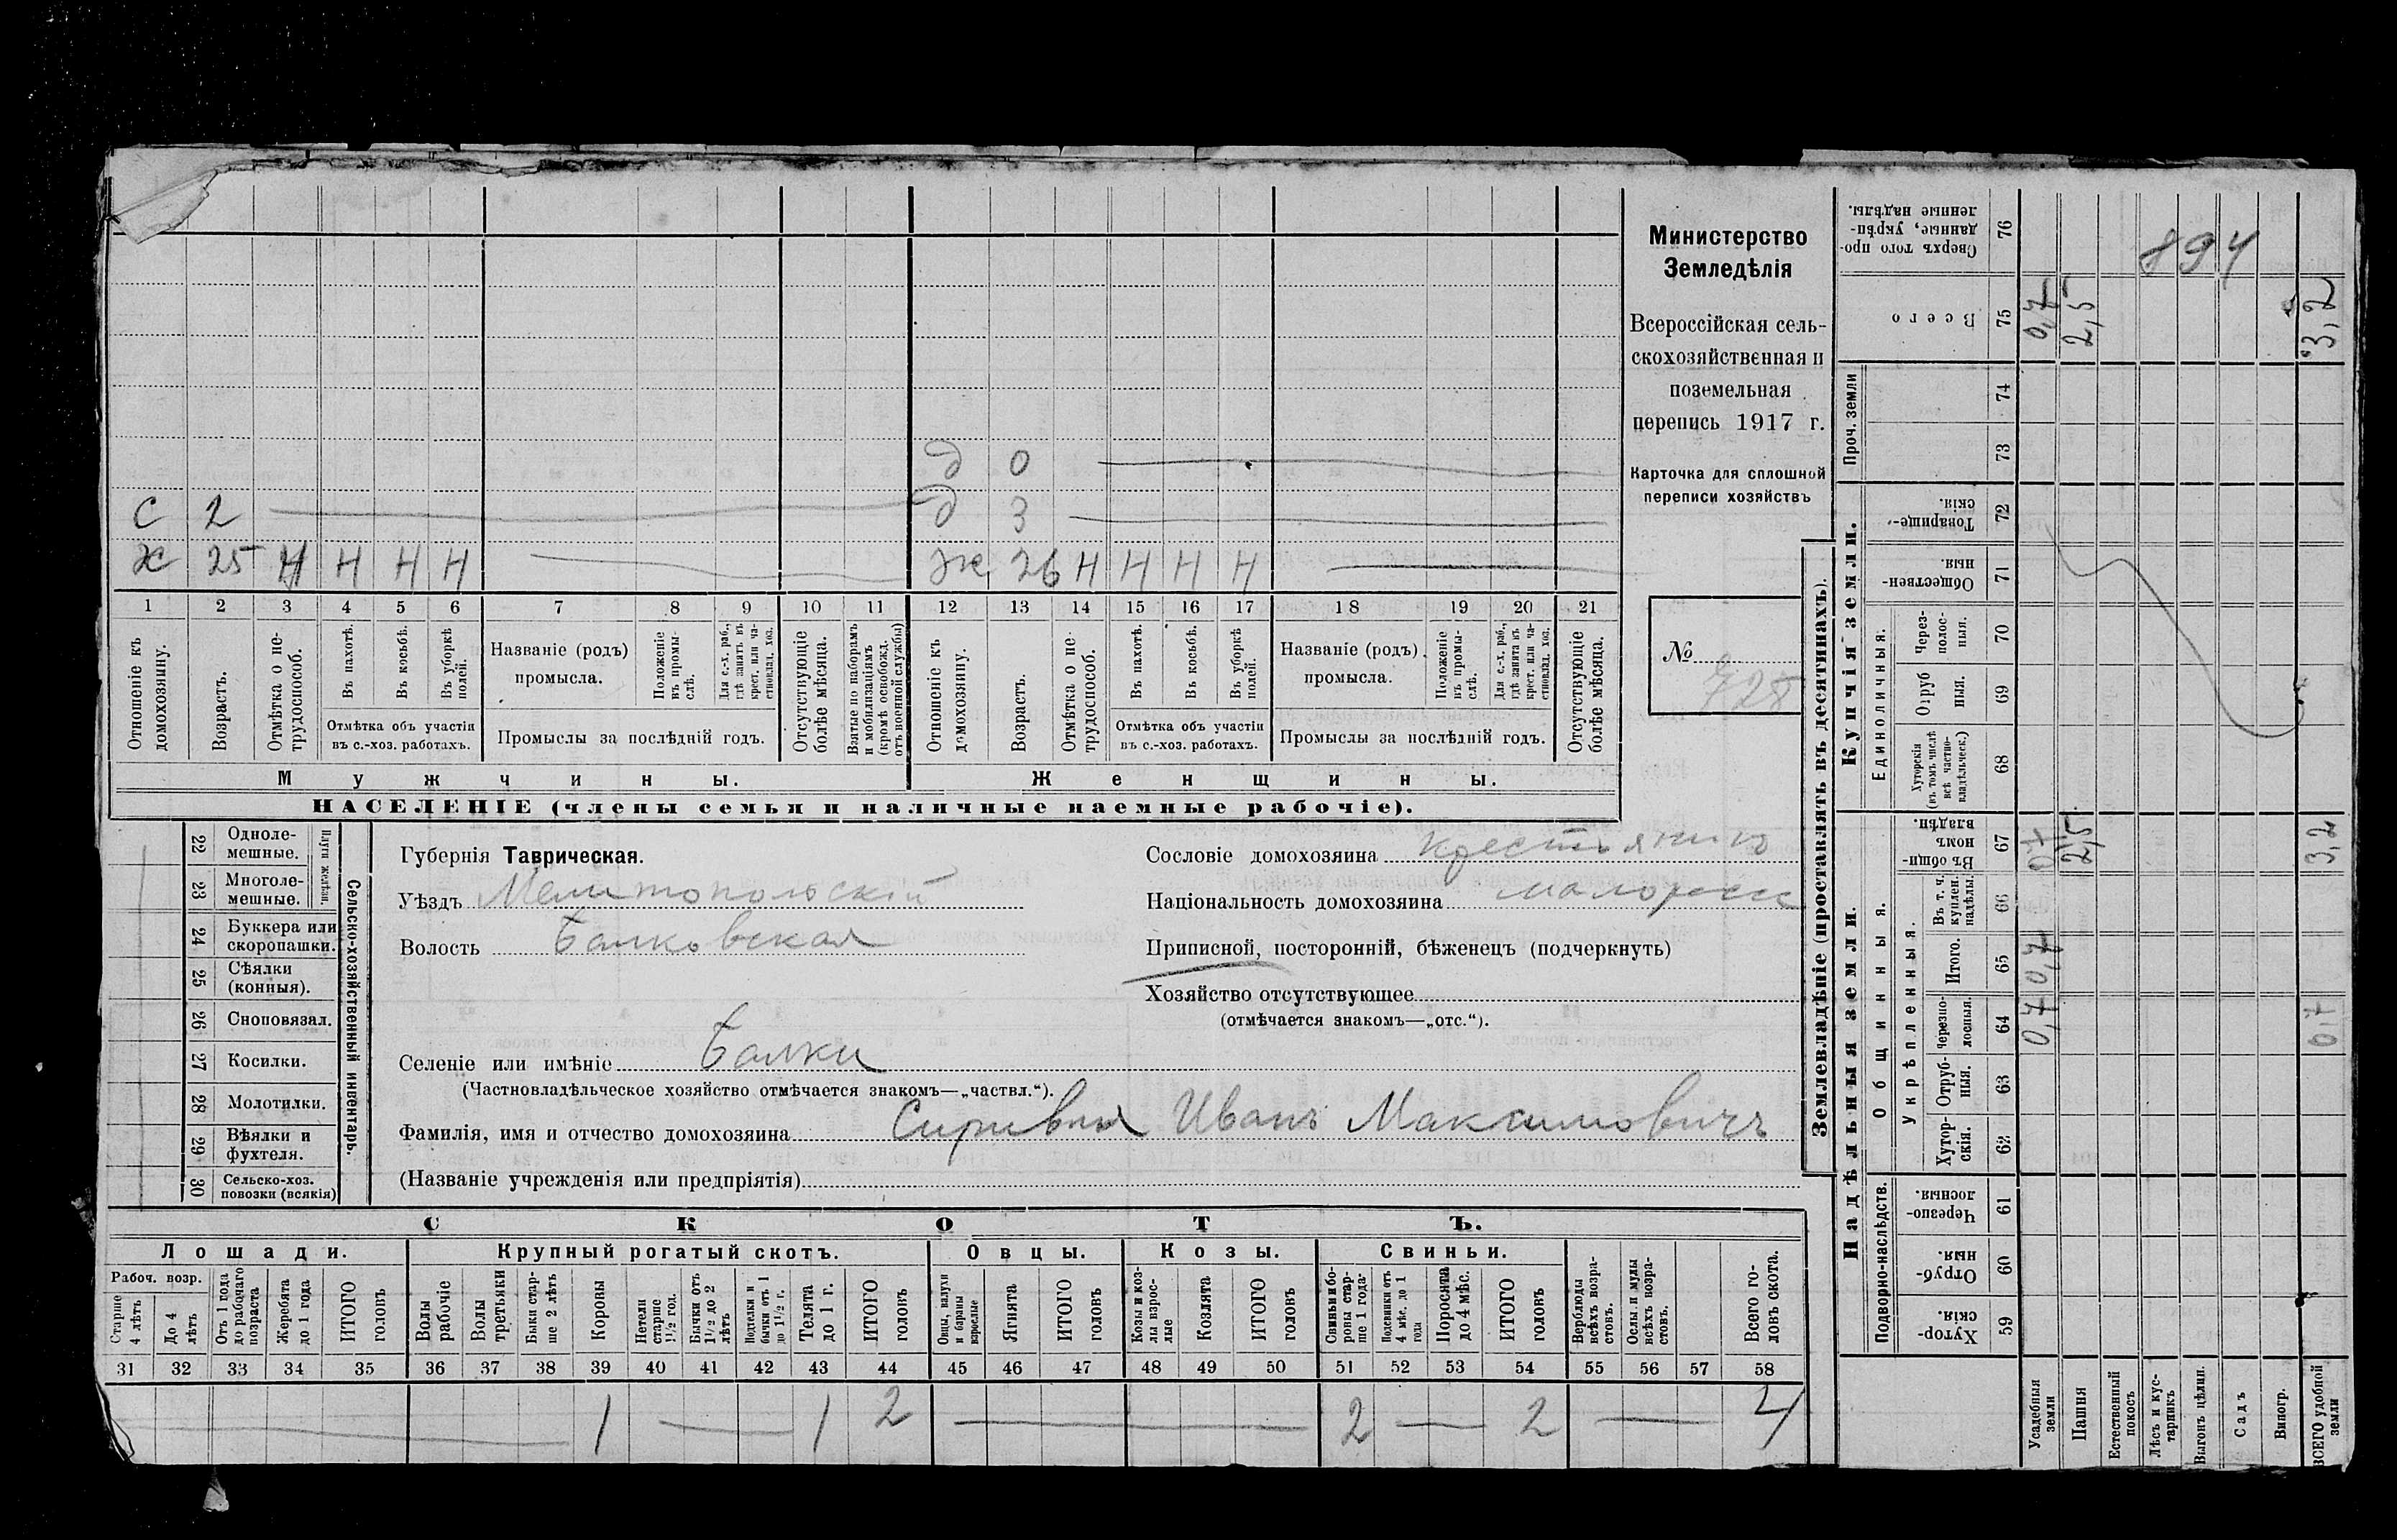 Министерство
Земледѣлія
Всероссійская сель-
скохозяйственная и
поземельная
перепись 1917 г.
Карточка для сплошной
переписи хозяйствъ
№ 725
д 0
с 2 д 3
х 25 н н н н ж 26 н н н н
1 2 3 4 5 6 7 8 9 10 11 12 13 14 15 16 17 18 19 20 21
Отношеніе къ домохозяину.
Возрастъ.
Отмѣтка о не-трудоспособ.
Въ пахотѣ.
Въ косьбѣ.
Въ уборкѣ полей.
Отмѣтка объ участіи
въ с.-хоз. работахъ.
Названіе (родъ)
промысла.
Положеніе въ промы-слѣ.
Для с.-х. раб., гдѣ занятъ въ крест. или ча-стновлад. хоз.
Промыслы за послѣдній годъ.
Отсутствующіе болѣе мѣсяца.
Взятые по наборамъ и мобилизаціямъ (кромѣ освобожд. отъ военной службы)
Отношеніе къ домохозяину.
Возрастъ.
Отмѣтка о не-трудоспособ.
Въ пахотѣ.
Въ косьбѣ.
Въ уборкѣ полей.
Отмѣтка объ участіи
въ с.-хоз. работахъ.
Названіе (родъ)
промысла.
Положеніе въ промы-слѣ.
Для с.-х. раб., гдѣ занята въ крест. или ча-стновлад. хоз.
Промыслы за послѣдній годъ.
Отсутствующіе болѣе мѣсяца.
Мужчины. Женщины.
НАСЕЛЕНІЕ (члены семьи и наличные наемные рабочіе).
Сельско-хозяйственный инвентарь.
Плуги желѣзн.
22 Одноле-мешные.
23 Многоле-мешные.
24 Буккера или скоропашки.
25 Сѣялки (конныя).
26 Сноповязал.
27 Косилки.
28 Молотилки.
29 Вѣялки и фухтеля.
30 Сельско-хоз. повозки (всякія)
Губернія Таврическая.
Уѣздъ Мелитопольскій
Волость Балковская
Сословіе домохозяина крестьянинъ
Національность домохозяина малоросс
Приписной, посторонній, бѣженецъ (подчеркнуть)
Хозяйство отсутствующее
(отмѣчается знакомъ—„отс.“).
Селеніе или имѣніе Балки
(Частновладѣльческое хозяйство отмѣчается знакомъ—„частвл.“).
Фамилія, имя и отчество домохозяина Иванъ Максимовичъ
(Названіе учрежденія или предпріятія)
СКОТЪ.
Лошади. Крупный рогатый скотъ. Овцы. Козы. Свиньи.
Рабоч. возр.
Старше 4 лѣтъ
До 4 лѣтъ
Отъ 1 года до рабочаго возраста
Жеребята до 1 года
ИТОГО головъ
Волы рабочіе
Волы третьяки
Быки стар-ше 2 лѣтъ
Коровы
Нетели старше 1½ год.
Бычки отъ 1½ до 2 лѣтъ
Подтелки и бычки отъ 1 до 1½ г.
Телята до 1 г.
ИТОГО головъ
Овцы, валухи и бараны взрослые
Ягнята
ИТОГО головъ
Козы и коз-лы взрос-лые
Козлята
ИТОГО головъ
Свиньи и бо-ровы стар-ше 1 года
Подсвинки отъ 4 мѣс. до 1 года
Поросята до 4 мѣс.
ИТОГО головъ
Верблюды всѣхъ возра-стовъ.
Ослы и мулы всѣхъ возра-стовъ.
Всего го-ловъ скота.
31 32 33 34 35 36 37 38 39 40 41 42 43 44 45 46 47 48 49 50 51 52 53 54 55 56 57 58
1 1 2 2 2 4
Землевладѣніе (проставлять въ десятинахъ).
Надѣльныя земли. Купчія земли.
Проч. земли
Подворно-наслѣдств.
Общинныя.
Укрѣпленныя.
Единоличныя:
Сверхъ того про-данные, укрѣп-ленные надѣлы. 76
894
Всего 75 0,7 2,5 3,2
74
73
Товарище-скія. 72
Обществен-ныя. 71
Через-полос-ныя. 70
Отруб ныя. 69
Хуторскія (въ томъ числѣ всѣ частно-владѣльческ.) 68
Въ общи-номъ владѣн. 67 0,7 2,5 3,2
Въ т. ч. куплен. надѣлы. 66
Итого. 65 0,7
Черезпо-лосныя. 64 0,7 0,7
Отруб-ныя. 63
Хутор-скія. 62
Черезпо-лосныя. 61
Отруб-ныя. 60
Хутор-скія. 59
Усадебныя земли
Пашня
Естественный покосъ
Лѣсъ и кус-тарникъ
Выгонъ цѣлин.
Садъ
Виногр.
ВСЕГО удобной земли